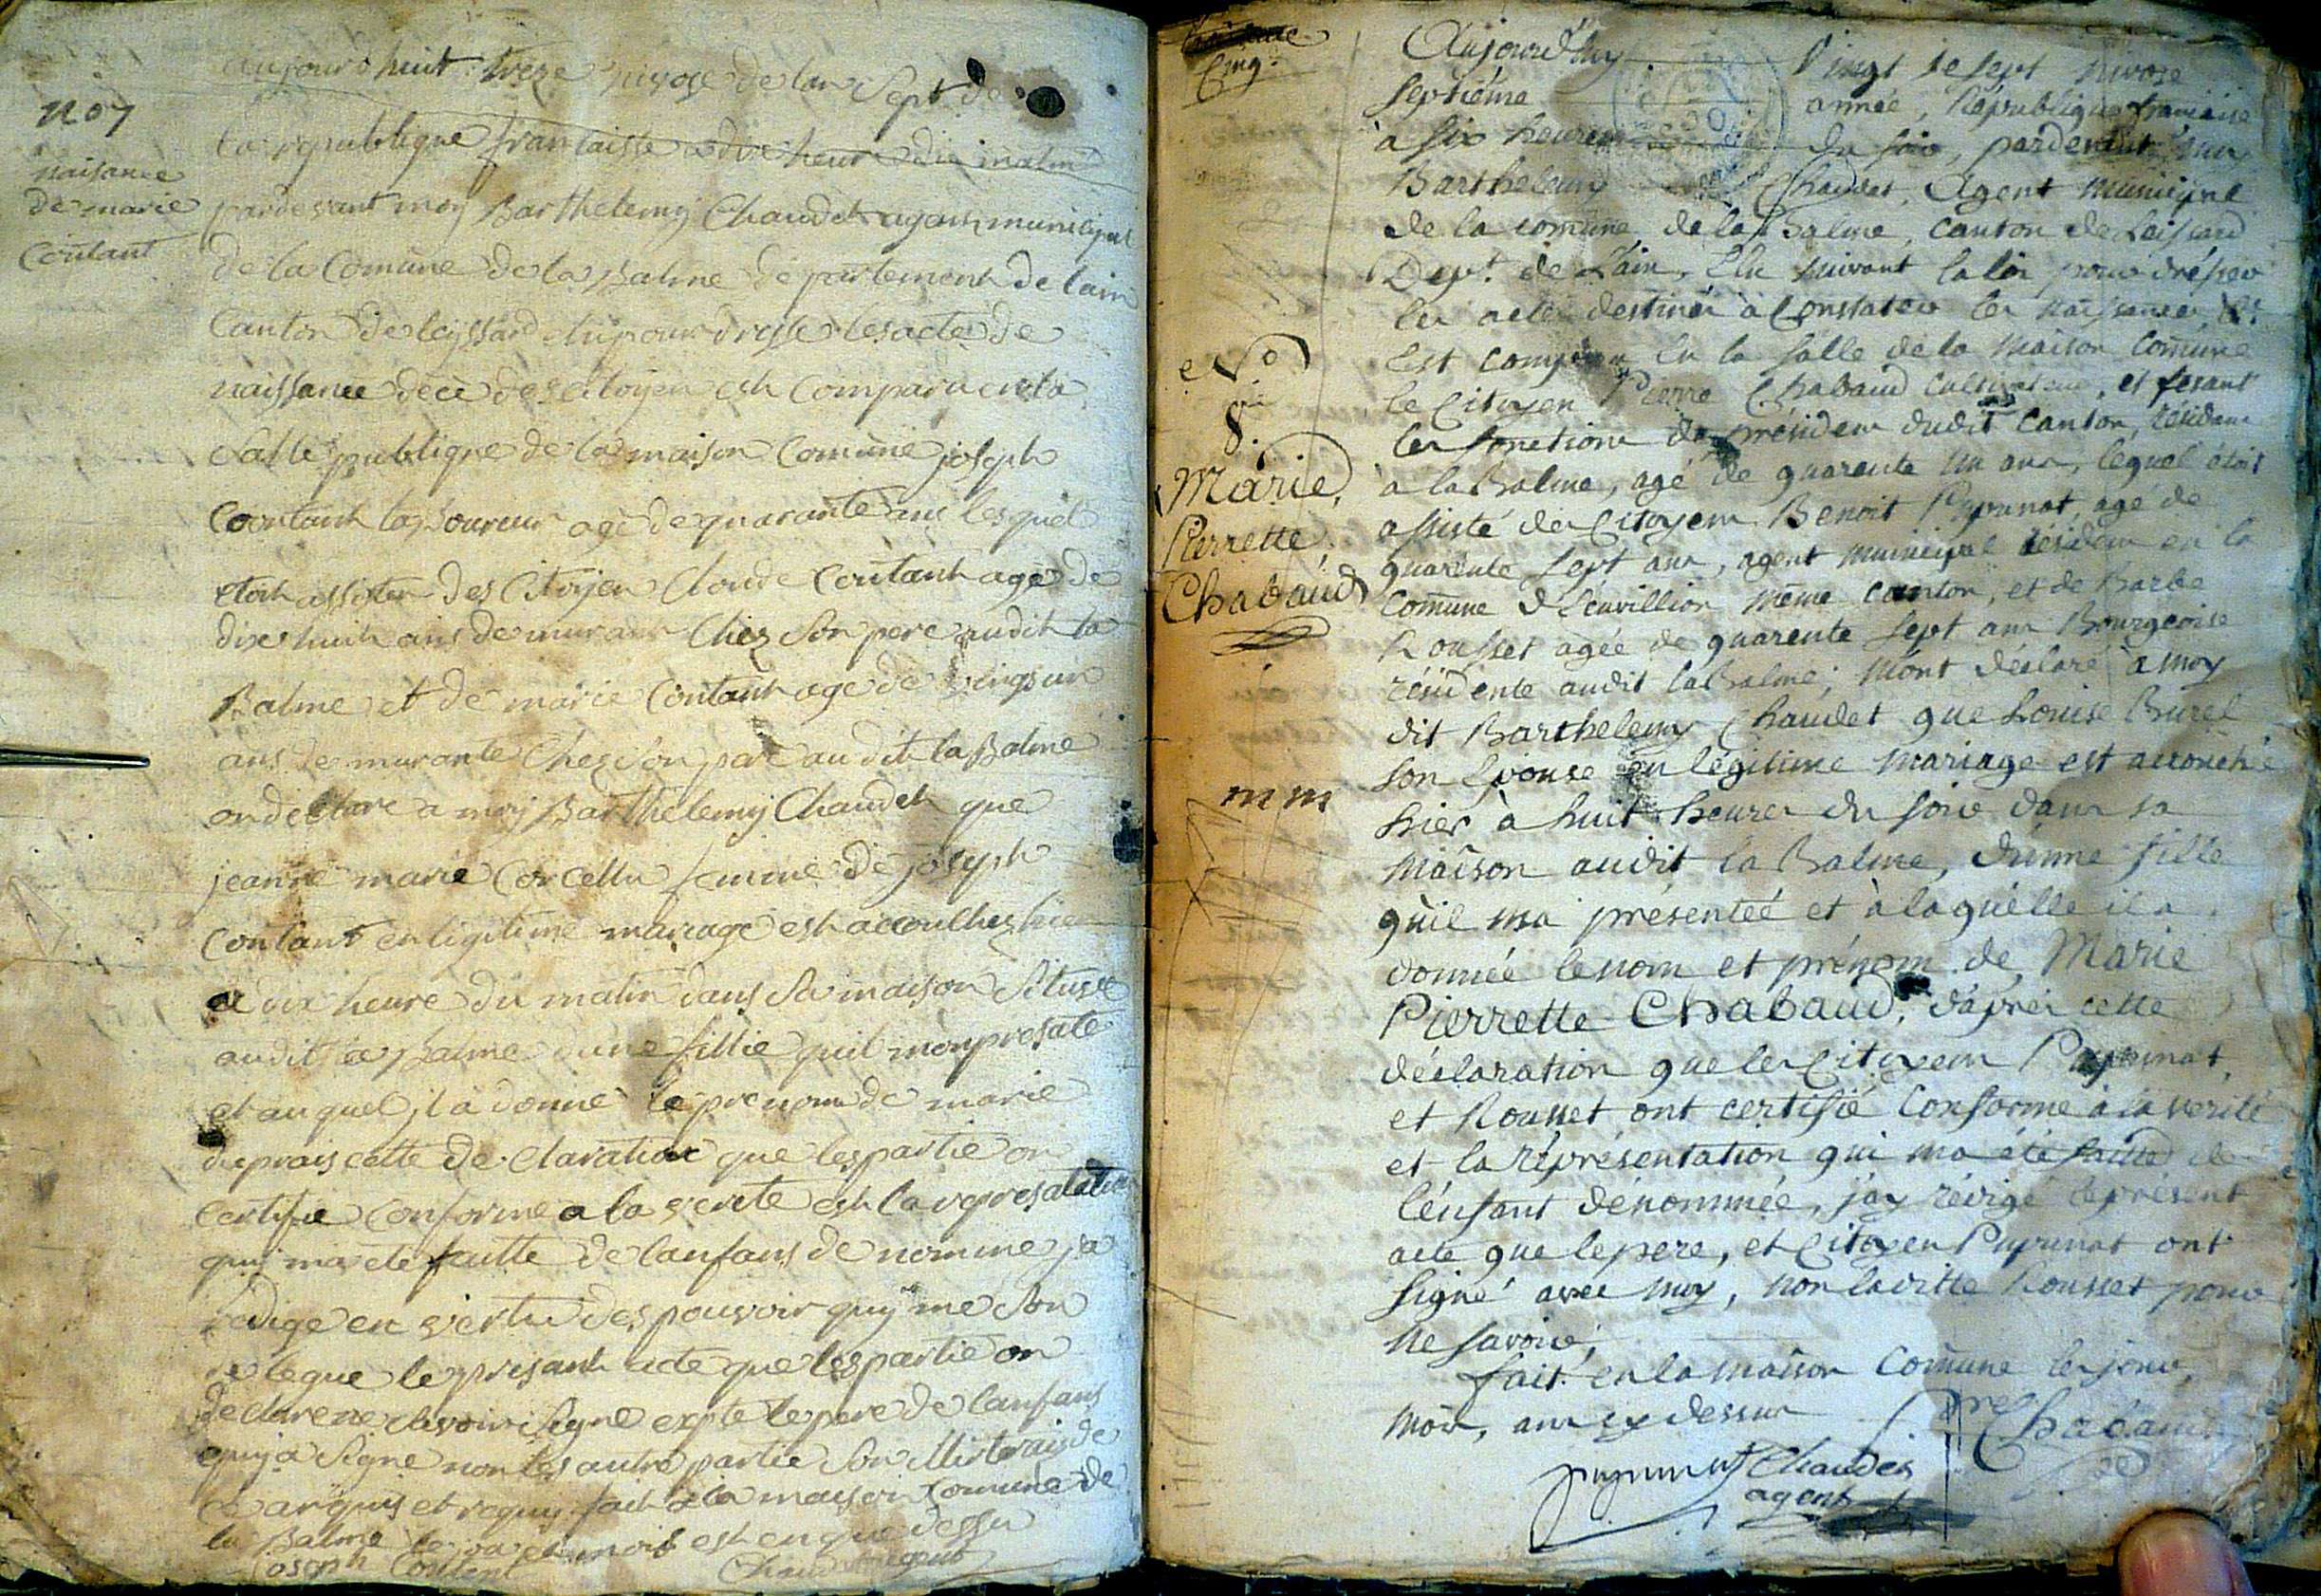 n o 7
naisance
de marie
Coutant
aujourd huit treze nivose de lan Sept de
la republique francaisse a dix heure du matin
pardevant moy Barthelemy Chaudet agent municipal
de la Comune de la Balme departement de lain
Canton de leyssard elu pour dresse les acte de
naissance décè des Citoyen est Comparu en la
Salle publique de la maison Comune joseph
Coutant laboureur agé de quarante ans lesquel
etoit assister des Citoyen Cloude Coutant age de
dixe huit ans demurant Chez Son pere audit la
Balme et de marie Coutant age de vingt un
ans demurante Chez Son pere audit la Balme
on declare a moy Barthelemy Chaudet que
jeanne marie Corcellu femme de joseph
Coutant en ligitime mariage est accouchez hier
a dix heure du matin dans Sa maison Situsé
audit la Balme dune fillie quil mon presaté
et au quel jl a donné le prenom de marie
daprais cette declaration que les partie on
Certifie Conforme a la verité est la represatation
qui ma eté faitte de lanfans denomme ja
redige en vertu des pouvoir quy me Son
delegue le presant acte que les partie on
declare ne Savoir Signe expte le pere de lanfans
quy a Signe non les autre partie Son Mistrais de
Ce anquis et requis fait a la maison Comune de
la Balme le jour et mois est en que dessu
Joseph Coutant Chaudet agent
Cinq.
N.o
8.
Marie,
Pierrette,
Chabaud
m m
Aujourd'huy Vingt se sept nivose
septiéme année, Républiq francaise
à six heures du soir, pardevant moy
Barthelemy Chaudet, Agent municipal
de la comune de la Balme, canton de Leissard
Dept. de L'ain, Elu suivant la loi pour drésser
les actes destinés à Constater les naissances &c
Est comparu en la salle de la Maison Comune
le Citoyen Pierre Chabaud cultivateur, et fesant
les fonctions de président dudit canton, résidant
à la Balme, agé de quarante un ans, lequel étoit
assisté des Citoyens Benoit Pupunat, agé de
quarente sept ans, agent municipal résidant en la
Comune d'Leuvillion même canton, et de Barbe
Rousset agée de quarente sept ans Bourgeoise
résidente audit la Balme; Mont déclaré à moy
dit Barthelemy Chaudet que Louise Burel
son Epouse en légitime mariage est accouché
hier à huit heures du soir dans sa
Maison audit la Balme, d'une fille
qu'il ma présenteé et à laquélle il a
donnée le nom et prénom de Marie
Pierrette Chabaud, d'après cette
déclaration que les Citoyens Pupunat,
et Rousset ont certifié Conforme à la verité
et la réprésentation qui ma été faitte de
l'énfant dénommée, j'ay rédigé le présent
acte que le pere, et Citoyen Pupunat ont
signé avec moy, non laditte Rousset pour
ne savoir;
fait en la maison Comune les jour,
mois, ans sy dessus
Pre Chabaud
pupunat Chaudet
agent